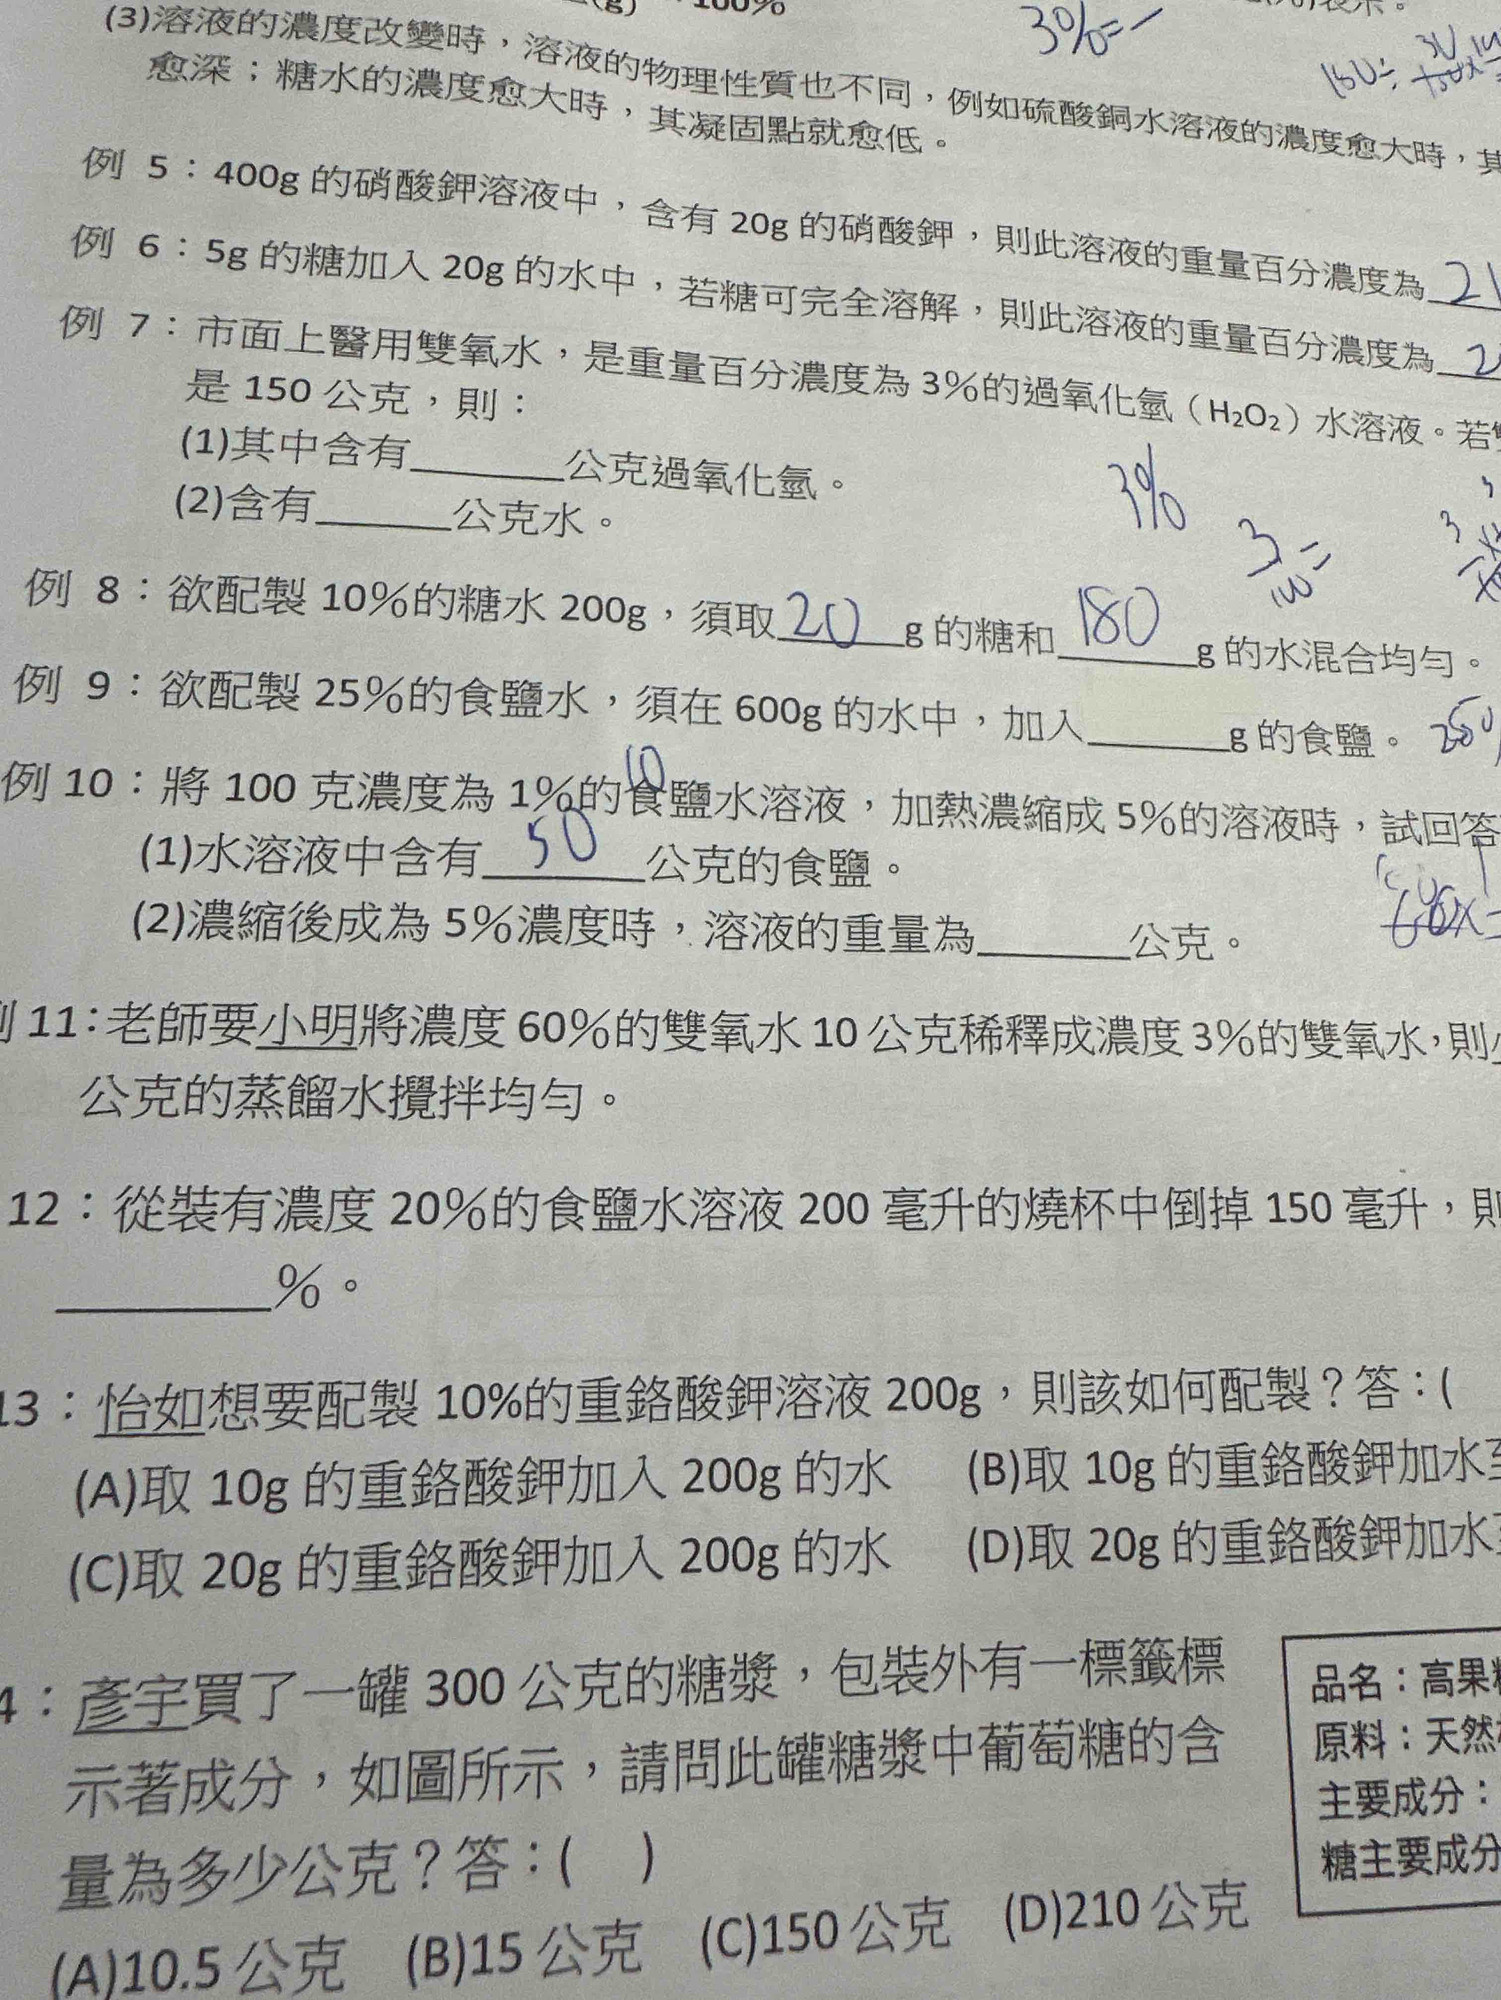 (3)溶液的濃度改變時，溶液的物理性質也不同，例如硫酸銅水溶液的濃度愈大時，其
愈深；糖水的濃度愈大時，其凝固點就愈低。
3%=
例 5：400g 的硝酸鉀溶液中，含有 20g 的硝酸鉀，則此溶液的重量百分濃度為
例 6：5g 的糖加入 20g 的水中，若糖可完全溶解，則此溶液的重量百分濃度為
例 7：市面上醫用雙氧水，是重量百分濃度為 3%的過氧化氫（H₂O₂）水溶液。若
是 150 公克，則：
(1)其中含有______公克過氧化氫。
3%
(2)含有______公克水。
例 8：欲配製 10%的糖水 200g，須取 20 g 的糖和 180 g 的水混合均勻。
例 9：欲配製 25%的食鹽水，須在 600g 的水中，加入______g 的食鹽。
10
例 10：將 100 克濃度為 1%的食鹽水溶液，加熱濃縮成 5%的溶液時，試回答
(1)水溶液中含有 50 公克的食鹽。
(2)濃縮後成為 5%濃度時，溶液的重量為______公克。
11：老師要小明將濃度 60%的雙氧水 10 公克稀釋成濃度 3%的雙氧水，則
公克的蒸餾水攪拌均勻。
12：從裝有濃度 20%的食鹽水溶液 200 毫升的燒杯中倒掉 150 毫升，則
________%。
13：怡如想要配製 10%的重鉻酸鉀溶液 200g，則該如何配製？答：(
(A)取 10g 的重鉻酸鉀加入 200g 的水 (B)取 10g 的重鉻酸鉀加水至
(C)取 20g 的重鉻酸鉀加入 200g 的水 (D)取 20g 的重鉻酸鉀加水
4：彥宇買了一罐 300 公克的糖漿，包裝外有一標籤標
示著成分，如圖所示，請問此罐糖漿中葡萄糖的含
量為多少公克？答：( )
(A)10.5 公克 (B)15 公克 (C)150 公克 (D)210 公克
品名：高果
原料：天然
主要成分：
糖主要成分